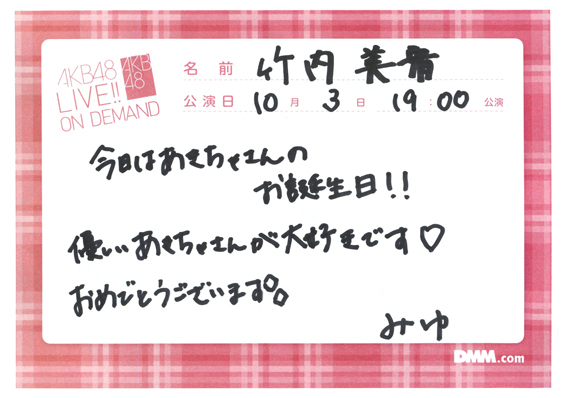 AKB48
LIVE!!
ON DEMAND
AKB
48
名前 竹内美宥
公演日 10月3日 19:00公演
今日はあきちゃさんの
お誕生日!!
優しいあきちゃさんが大好きです♡
おめでとうございます。
みゆ
DMM.com